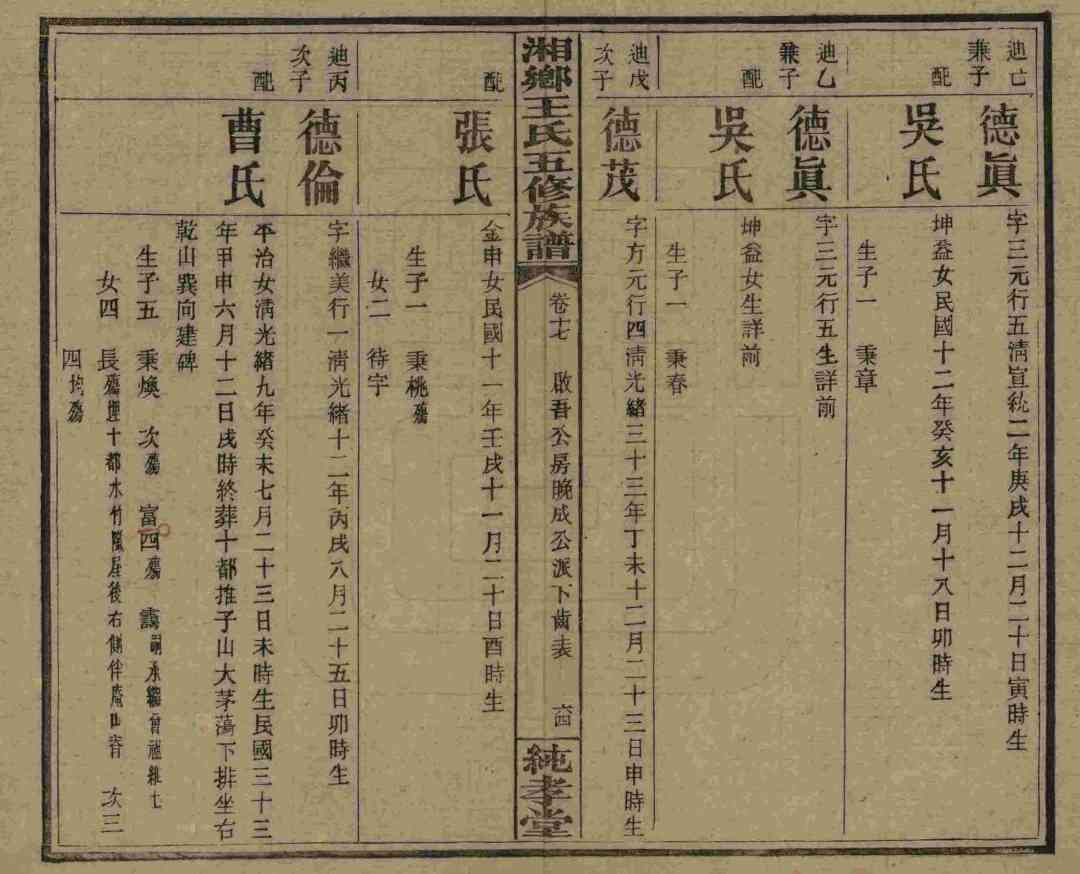 迪己
兼子
德眞
字三元行五淸宣統二年庚戌十二月二十日寅時生
配
吳氏
坤益女民國十二年癸亥十一月十八日卯時生
生子一 秉章
迪乙
兼子
德眞
字三元行五生詳前
配
吳氏
坤益女生詳前
生子一 秉春
迪戊
次子
德茂
字方元行四淸光緒三十三年丁未十二月二十三日申時生
湘鄉王氏五修族譜
卷十七
啟吾公房晚成公派下齒表
純孝堂
配
張氏
金申女民國十一年壬戌十一月二十日酉時生
生子一 秉桃殤
女二 待字
迪丙
次子
德倫
字繼美行一淸光緒十二年丙戌八月二十五日卯時生
配
曹氏
平治女淸光緒九年癸未七月二十三日未時生民國三十三
年甲申六月十二日戌時終葬十都推子山大茅蕩下排坐右
乾山巽向建碑
生子五 秉煥 次殤 富四殤
女四 長殤埋十都水竹 屋後右側伴 次三
四均殤